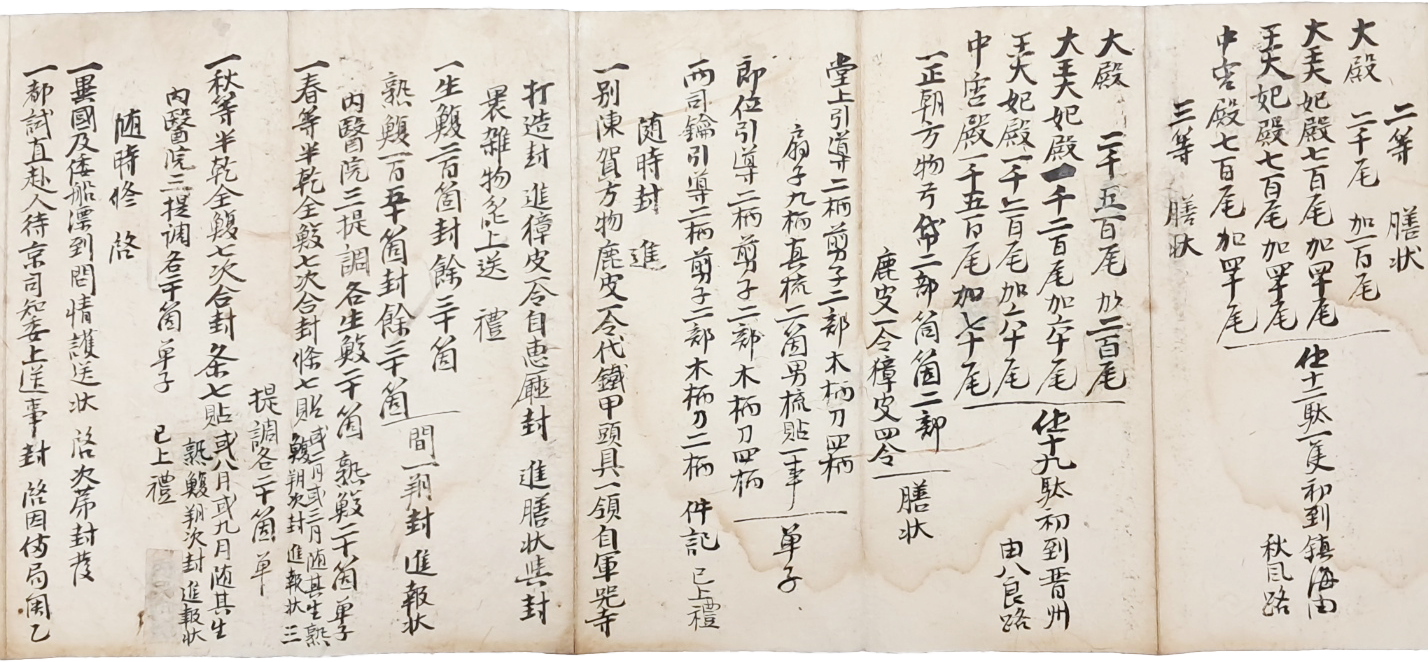 二等 膳狀
大殿 二千尾 加一百尾
大王大妃殿七百尾加四十尾
王大妃殿七百尾加四十尾
中宮殿七百尾加四十尾
仕十二駄一隻初到鎭海由
秋風路
三等 膳狀
大殿 二千五百尾 加二百尾
大王大妃殿一千二百尾加六十尾
王大妃殿一千二百尾加六十尾
中宮殿一千五百尾加七十尾
仕十九駄初到晋州
由八良路
一正朝方物弓帒二部筒箇二部
鹿皮一令獐皮四令
膳狀
堂上引導二柄剪子二部木柄刀四柄
扇子九柄真梳二箇男梳貼一事
即位引導二柄剪子二部木柄刀四柄
單子
兩司鑰引導二柄剪子二部木柄刀二柄 件記 已上禮
随時封 進
一別陳賀方物鹿皮一令代鐵甲頭具一領自軍器寺
打造封 進獐皮一令自惠廳封 進膳狀與封
裹雜物上送 禮
一生鰒二百箇封餘三十箇
熟鰒一百五十箇封餘二十箇
間一朔封 進報狀
內醫院三提調各生鰒二十箇熟鰒二十箇單子
一春等半乾全鰒七次合封條七貼或二月或三月随其生熟
鰒朔次封 進報狀三
提調各二十箇單
一秋等半乾全鰒七次合封条七貼或八月或九月随其生
熟鰒朔次封 進報狀
內醫院三提調各二十箇單子 已上禮
随時修 啓
一異國及倭船漂到問情護送狀 啓次第封發
一都試直赴人待京司知委上送事封 啓因備局關乙